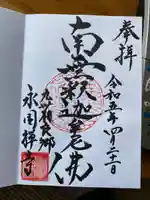 奉拝
令和五年四月
南無釈迦牟尼佛
相良郷
永国禅寺